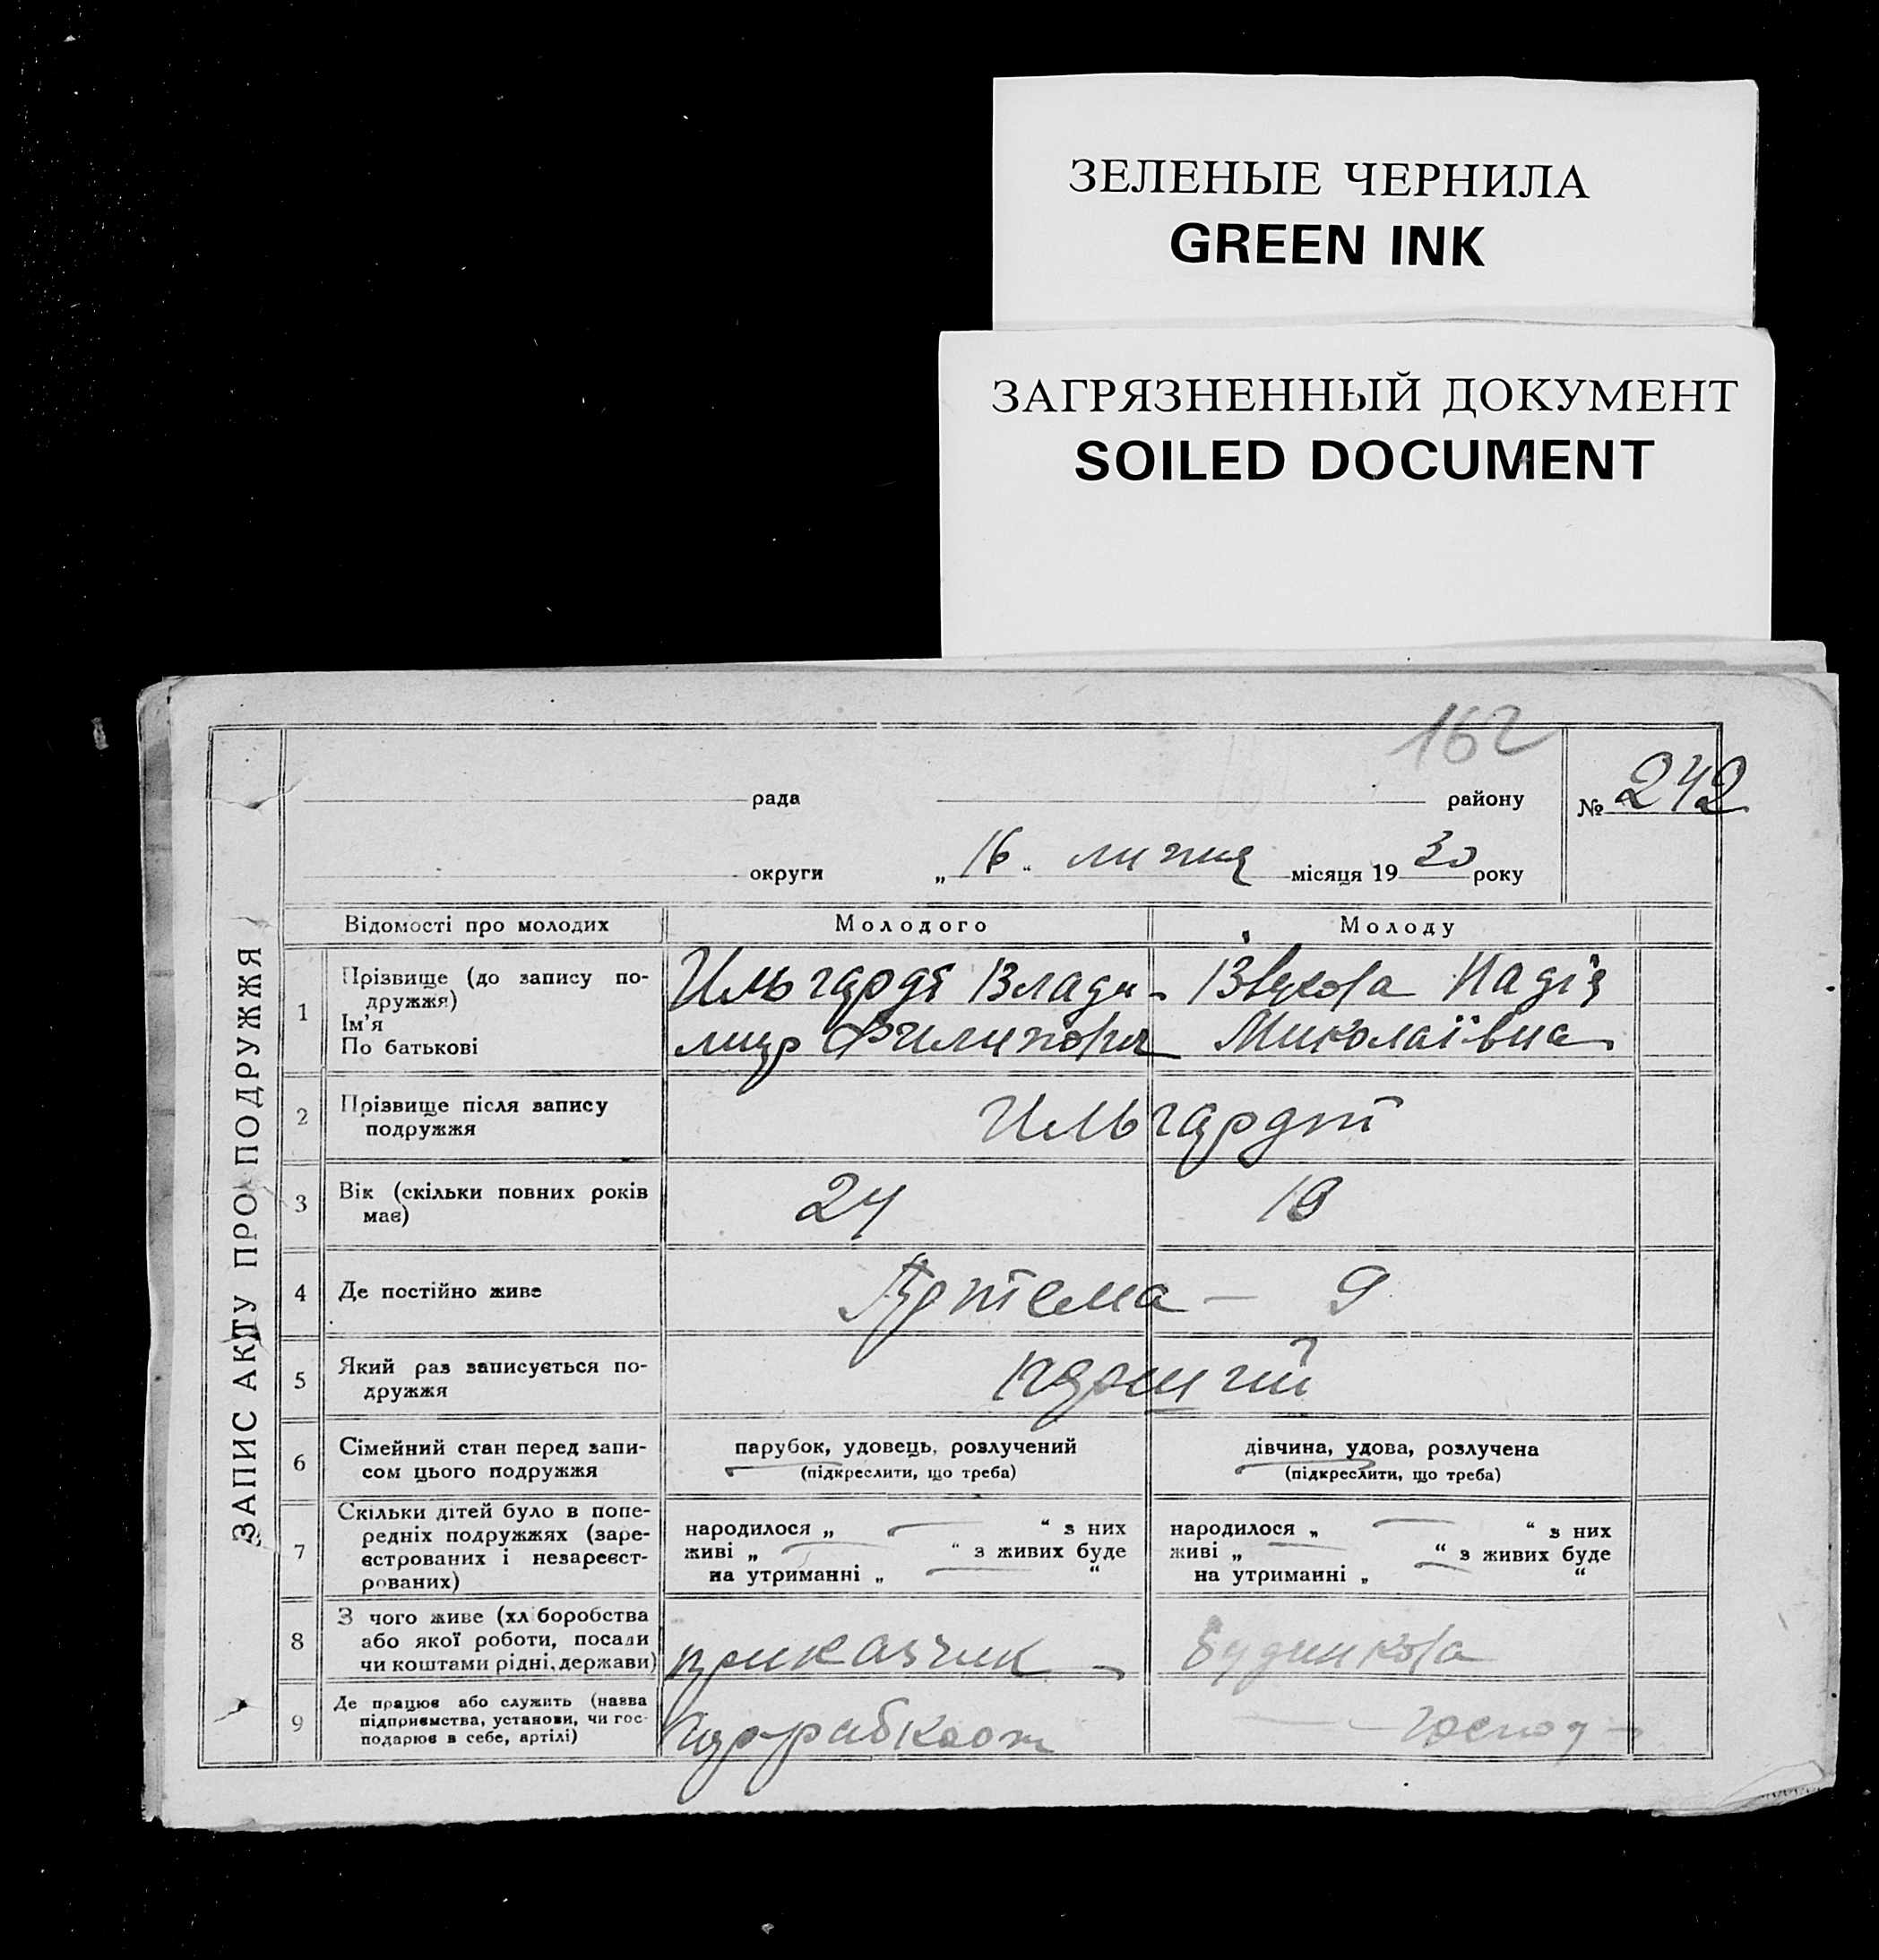 ЗЕЛЕНЫЕ ЧЕРНИЛА
GREEN INK
ЗАГРЯЗНЕННЫЙ ДОКУМЕНТ
SOILED DOCUMENT
162
рада района № 242
округи „16“ липня місяця 1930 року
ЗАПИС АКТУ ПРО ПОДРУЖЖЯ
Відомості про молодих Молодого Молоду
1 Прізвище (до запису по-
дружжя)
Ім'я
По батькові
Ильгардт Влади-
мир Филипович
Звукова Надія
Миколаївна
2 Прізвище після запису
подружжя
Ильгардт
3 Вік (скільки повних років
має)
24 19
4 Де постійно живе
Артема — 9
5 Який раз записується по-
дружжя
6 Сімейний стан перед запи-
сом цього подружжя
парубок, удовець, розлучений
(підкреслити, що треба)
дівчина, удова, розлучена
(підкреслити, що треба)
7 Скільки дітей було в попе-
редніх подружжях (заре-
єстрованих і незареєст-
рованих)
народилося „ — “ з них
живі „ — “ з живих буде
на утриманні „ — “
народилося „ — “ з них
живі „ — “ з живих буде
на утриманні „ — “
8 З чого живе (хліборобства
або якої роботи, посади
чи коштами рідні, держави)
приказчик
9 Де працює або служить (назва
підприємства, установи, чи гос-
подарює в себе, артілі)